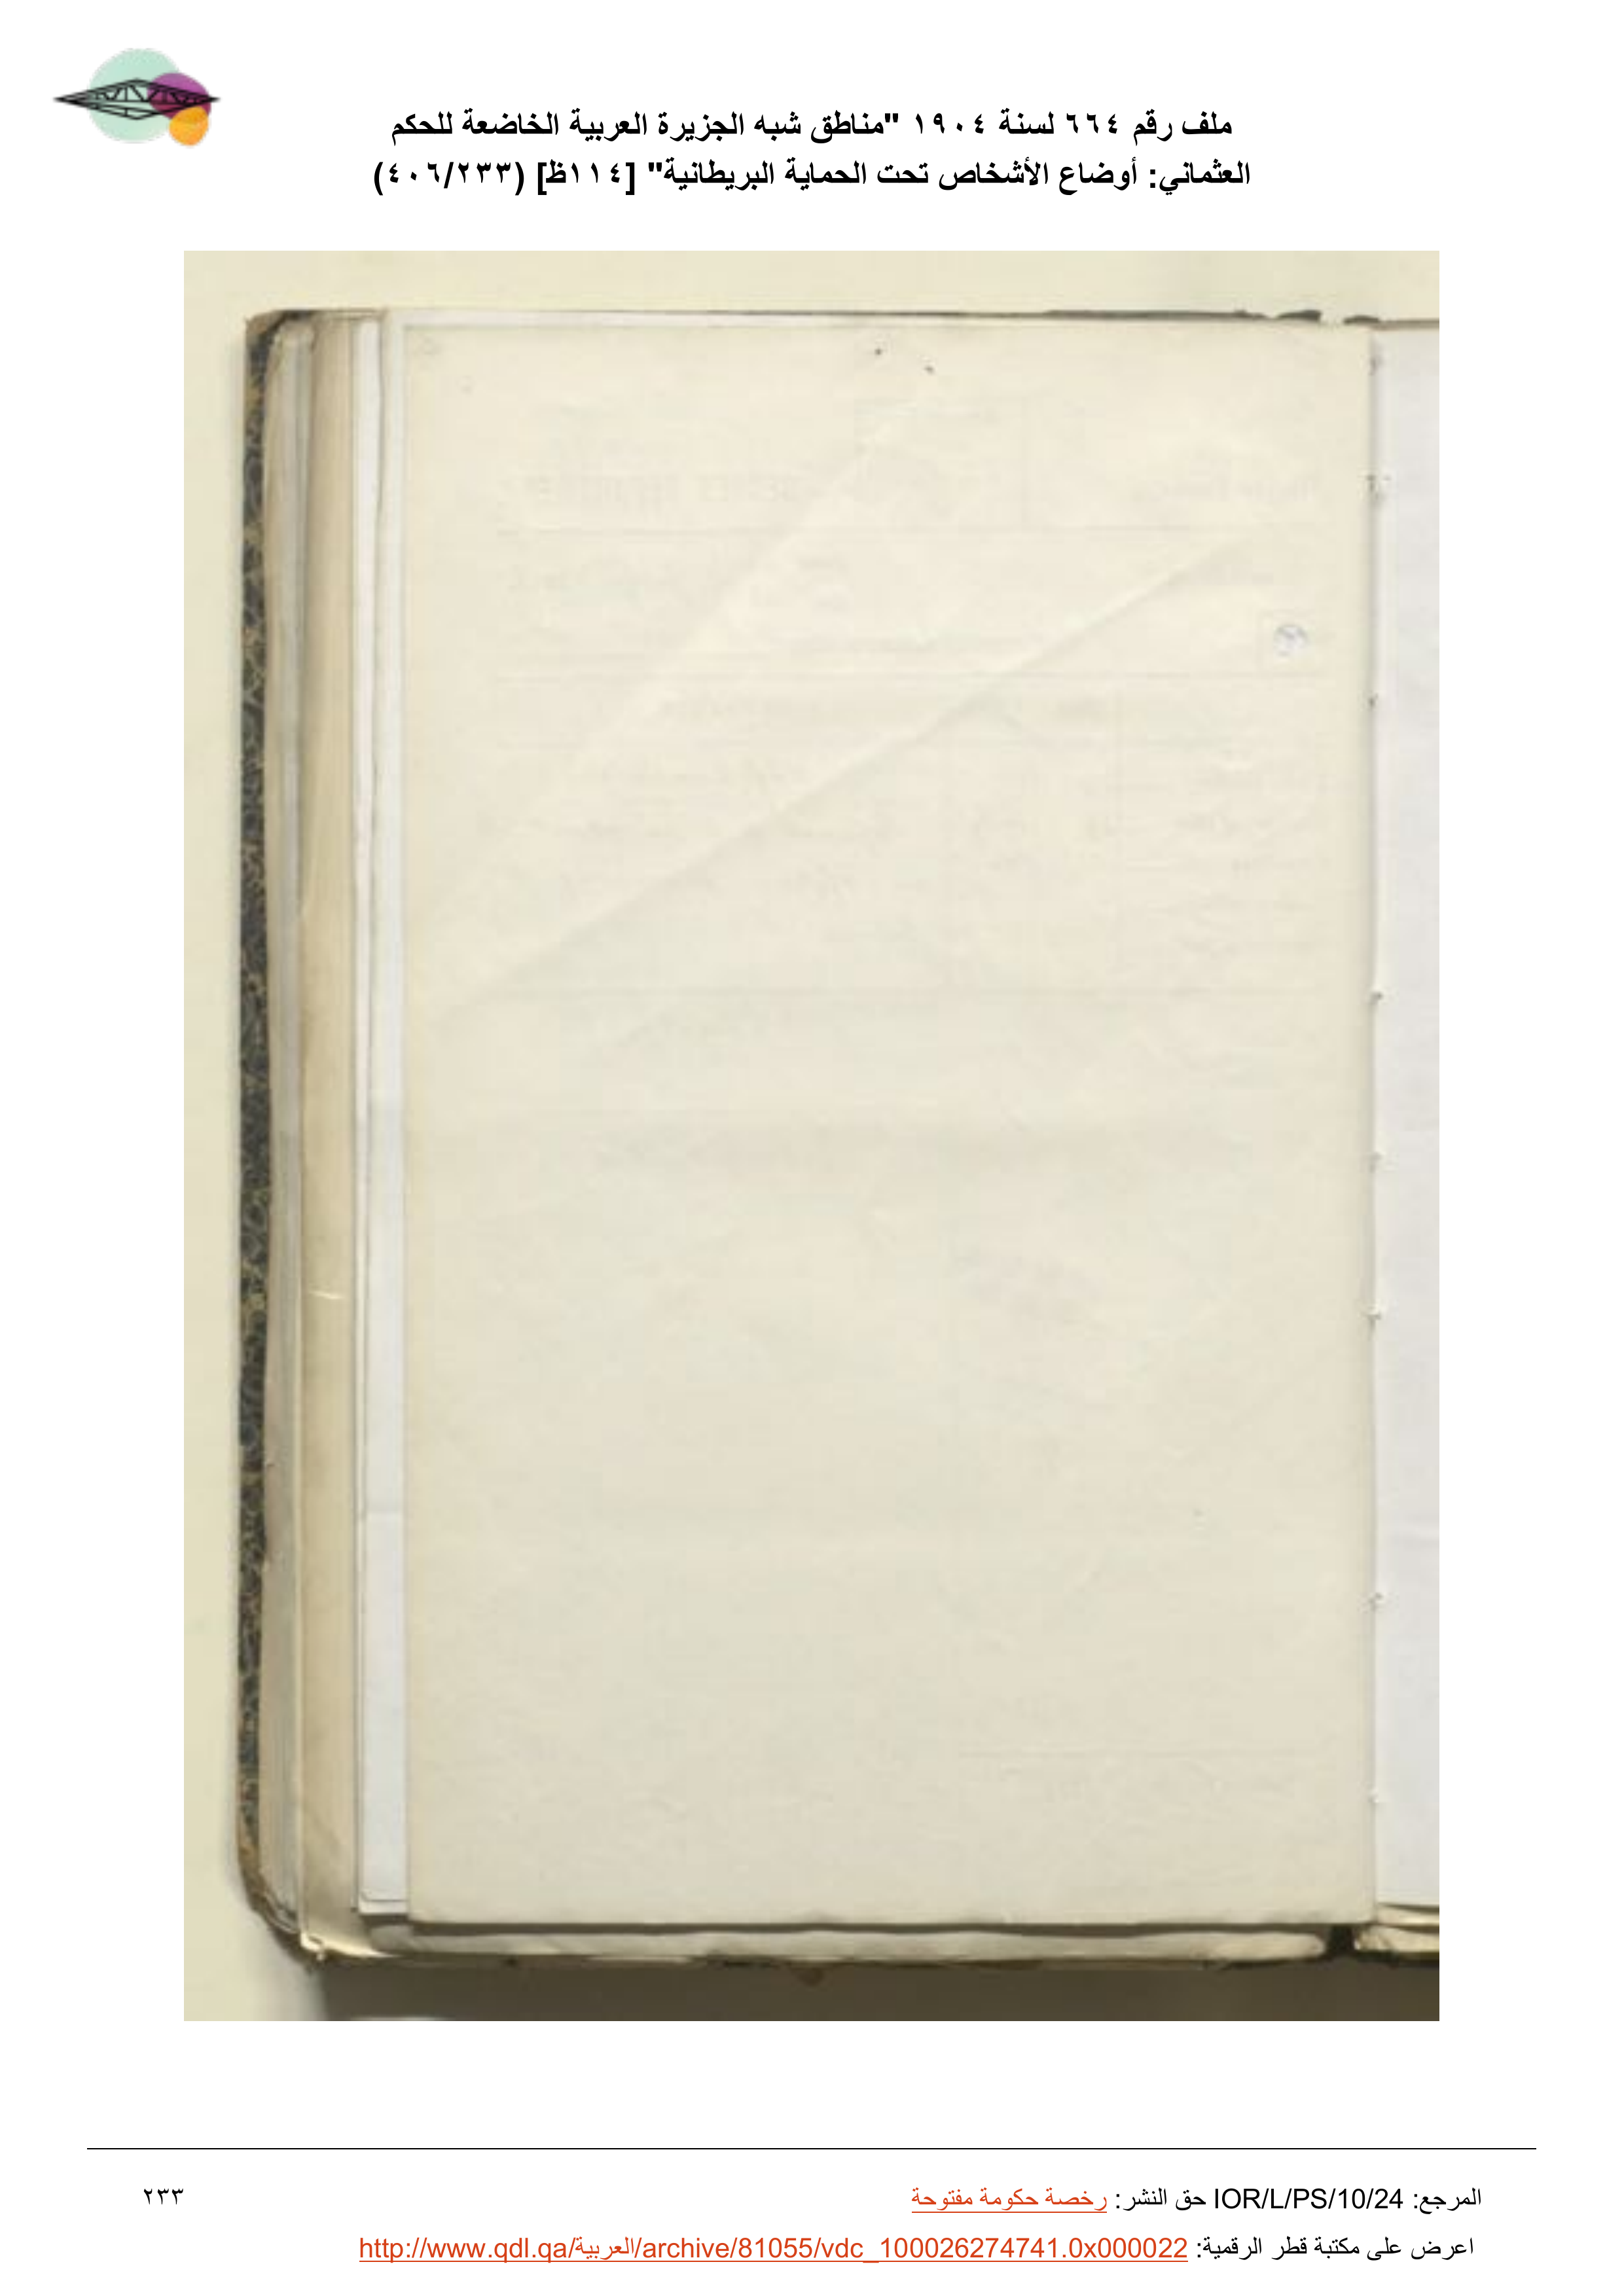 ملف رقم ٦٦٤ لسنة ١٩٠٤ "مناطق شبه الجزيرة العربية الخاضعة للحكم
العثماني: أوضاع الأشخاص تحت الحماية البريطانية" [١١٤ظ] (٤٠٦/٢٣٣)
المرجع: IOR/L/PS/10/24 حق النشر: رخصة حكومة مفتوحة
٢٣٣
اعرض على مكتبة قطر الرقمية: http://www.qdl.qa/العربية/archive/81055/vdc_100026274741.0x000022